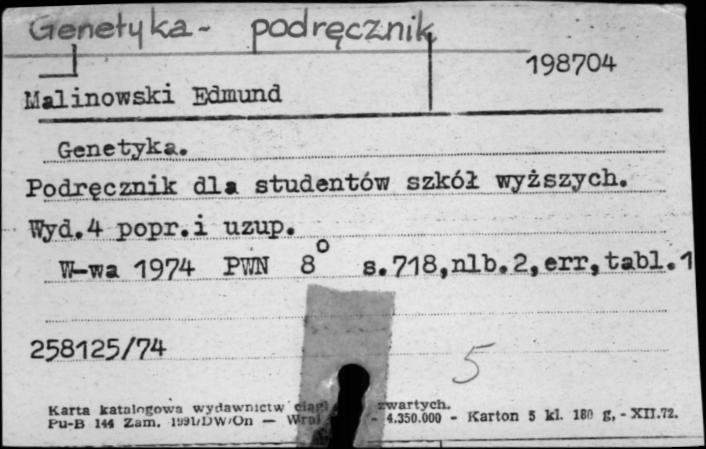 Genetyka - podręcznik
198704
Malinowski Edmund
Genetyka.
Podręcznik dla studentów szkół wyższych.
Wyd.4 popr.i uzup.
W-wa 1974 PWN 8° s.718,nlb.2,err,tabl.1
258125/74
5
Karta katalogowa wydawnictw zwartych.
Pu-B 144 Zam. 1991/DW/On — - 4.350.000 - Karton 5 kl. 180 g, - XII.72.